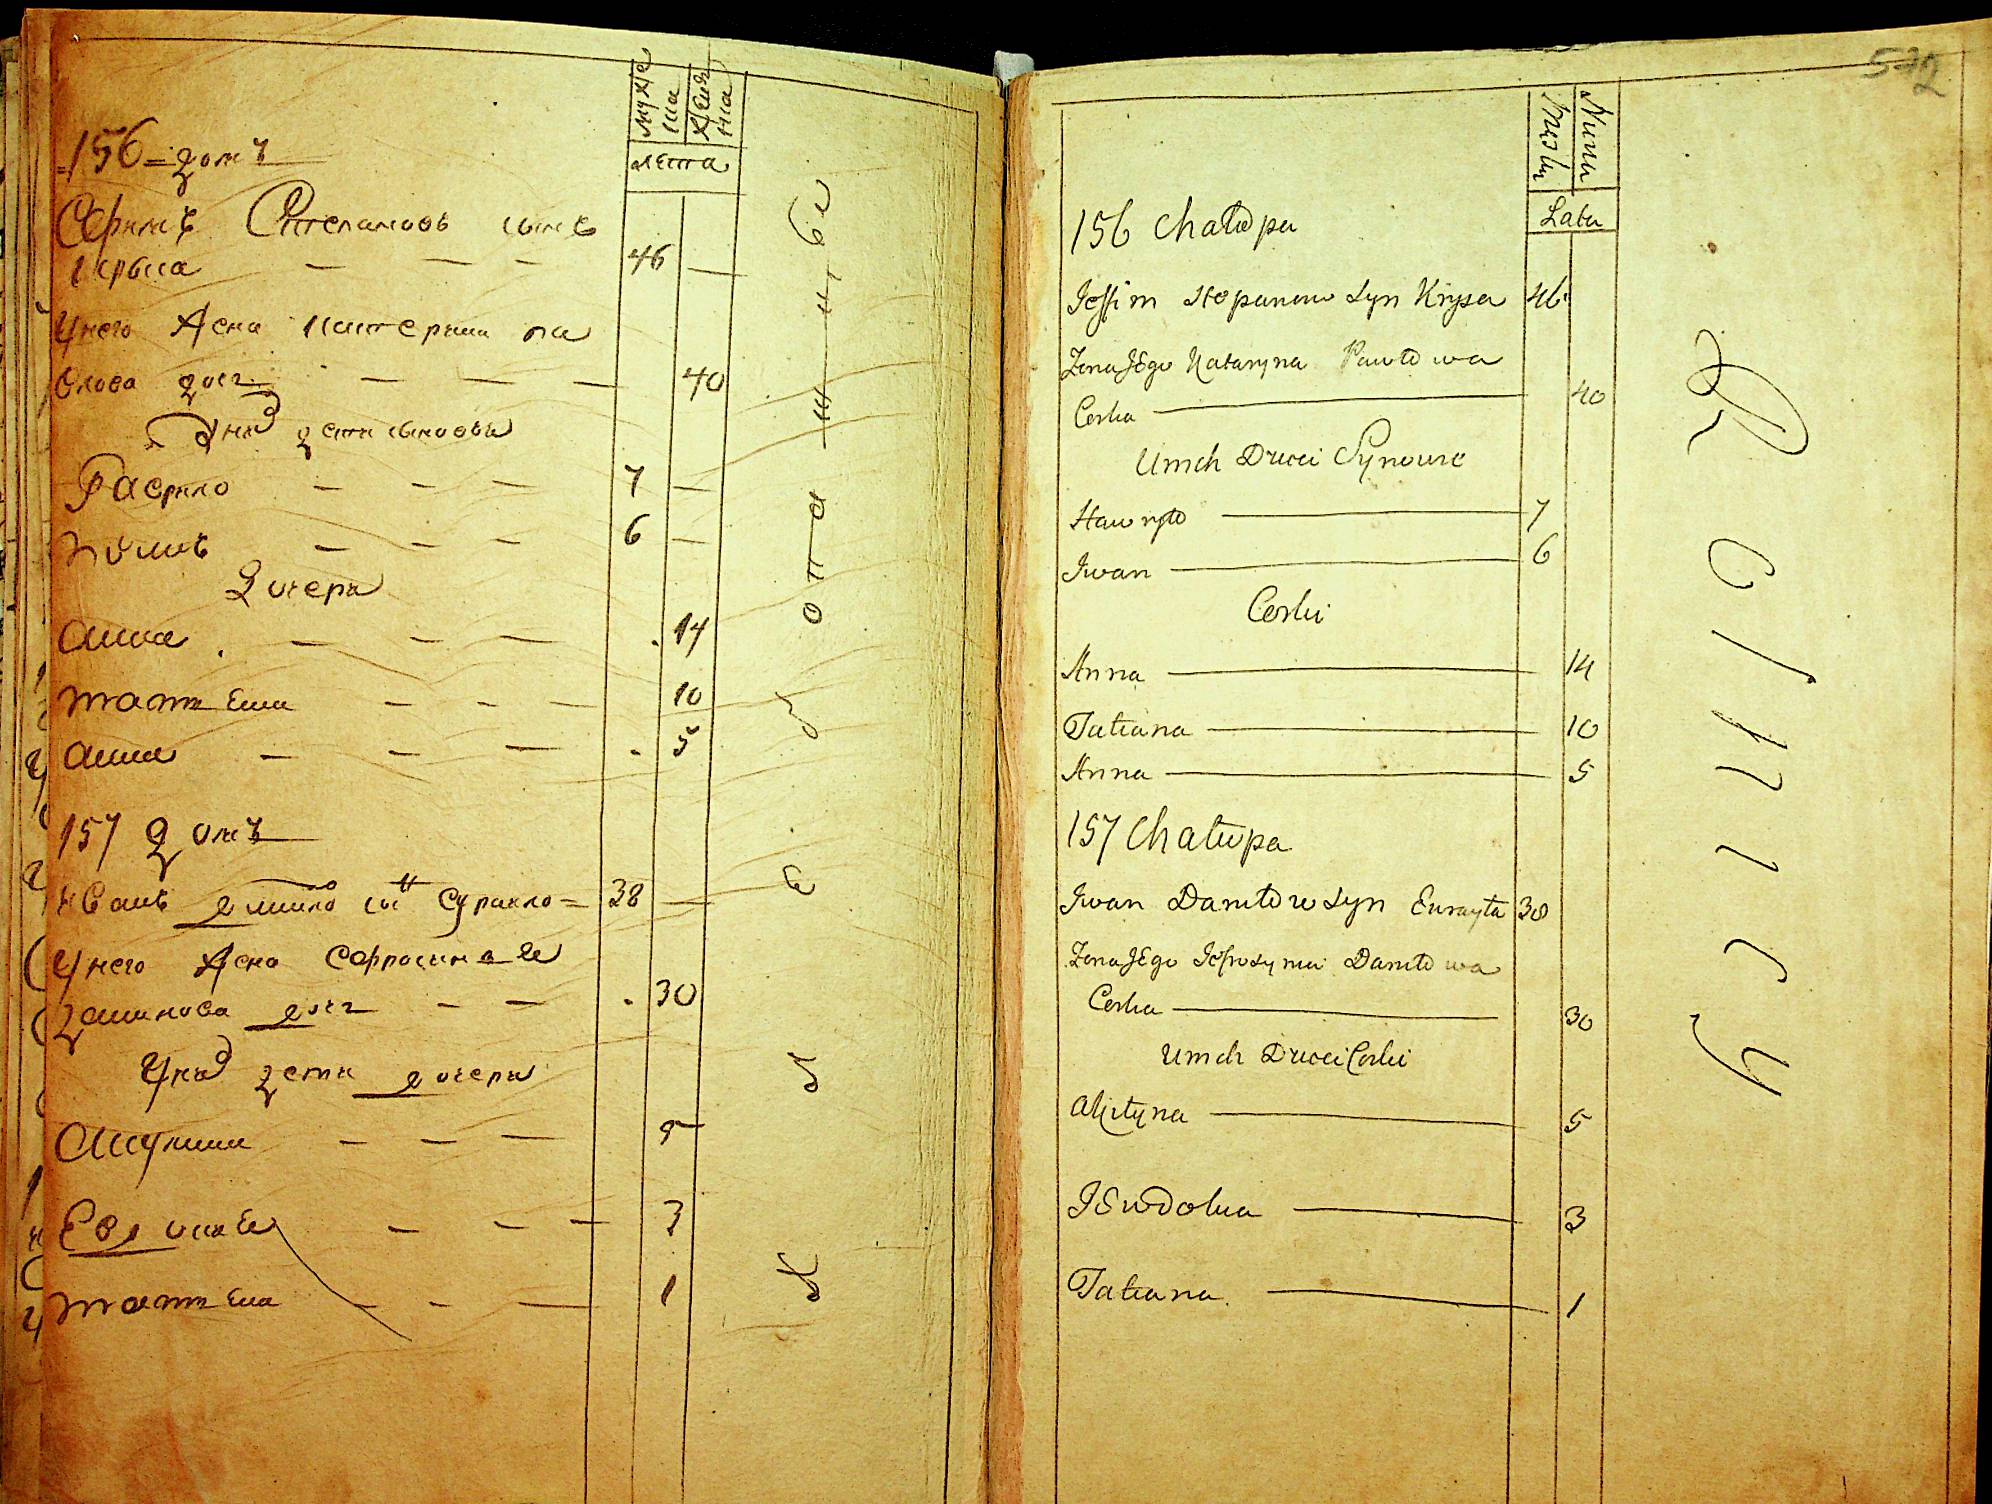 мужеска
женска
лета
156 домъ
Ефимъ Степановъ сынъ
Крыса — — — 46 —
У него жена Катерина па
влова доч — — — 40
У них дети сыновья
Гаврило — — — 7 —
Иванъ — — — 6 —
Дочери
Анна — — — 14
Татiена — — — 10
Анна — — — 5
157 домъ
Иванъ данило сы 38 —
У него жена Ефросиня
данилова доч — — 30
У них дети дочери
Акулина — — — 5
Евдокия — — — 3
Татiена — — — 1
572
Męski
Latu
156 Chałupa
Jeffim Stepanow Syn Krysa 46
Zona Jego Kataryna Pawłowa
Corka 40
Umch Dzieci Synowie
Hawryło 7
Iwan 6
Corki
Anna 14
Tatiana 10
Anna 5
157 Chałupa
Iwan Daniłow Syn 38
Zona Jego Daniłowa
Corka 30
Umch Dzieci Corki
Akulyna 5
Jewdokia 3
Tatiana 1
Rolnicy